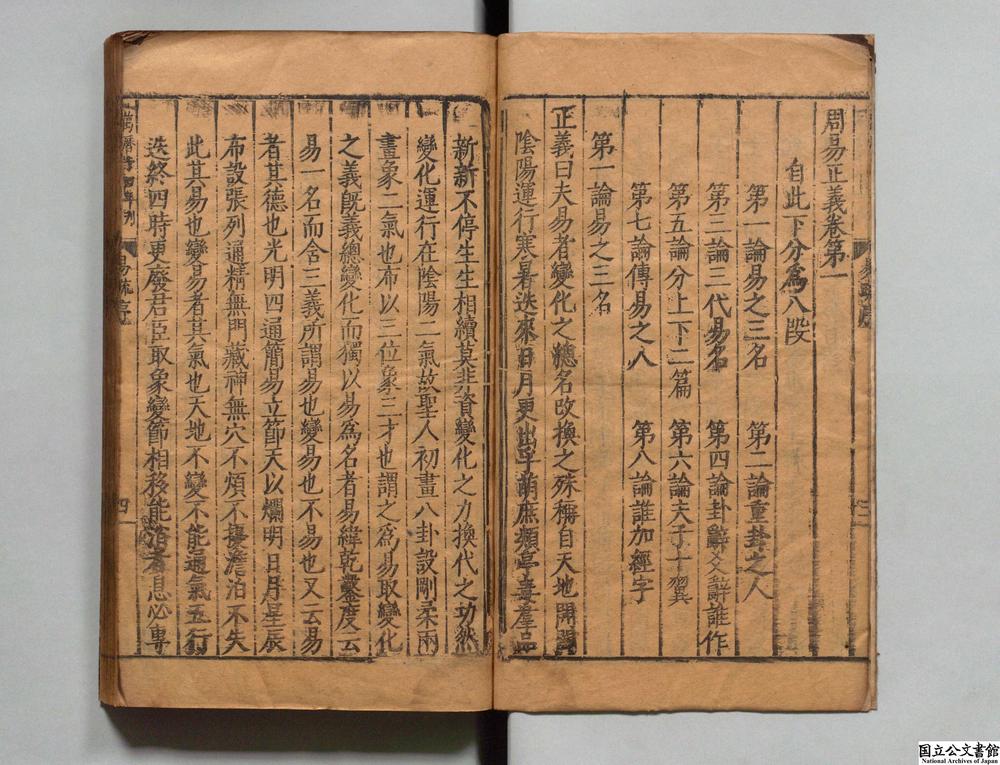 周易正義卷第一
自此下分爲八段
第一論易之三名 第二論重卦之人
第三論三代易名 第四論卦辭爻辭誰作
第五論分上下二篇 第六論夫子十翼
第七論傳易之人 第八論誰加經字
第一論易之三名
正義曰夫易者變化之緫名改換之殊稱自天地開闢
陰陽運行寒暑迭來日月更出孚萌庶類亭毒羣品
新新不停生生相續莫非資變化之力換代之功然
變化運行在陰陽二氣故聖人初畫八卦設剛柔兩
畫象二氣也布以三位象三才也謂之爲易取變化
之義旣義總變化而獨以易爲名者易緯乾鑿度云
易一名而含三義所謂易也變易也不易也又云易
者其德也光明四通簡易立節天以爛明日月星辰
布設張列通精無門藏神無穴不煩不擾澹泊不失
此其易也變易者其氣也天地不變不能通氣五行
迭終四時更廢君臣取象變節相移能消者息必專
易疏序
四
国立公文書館
National Archives of Japan